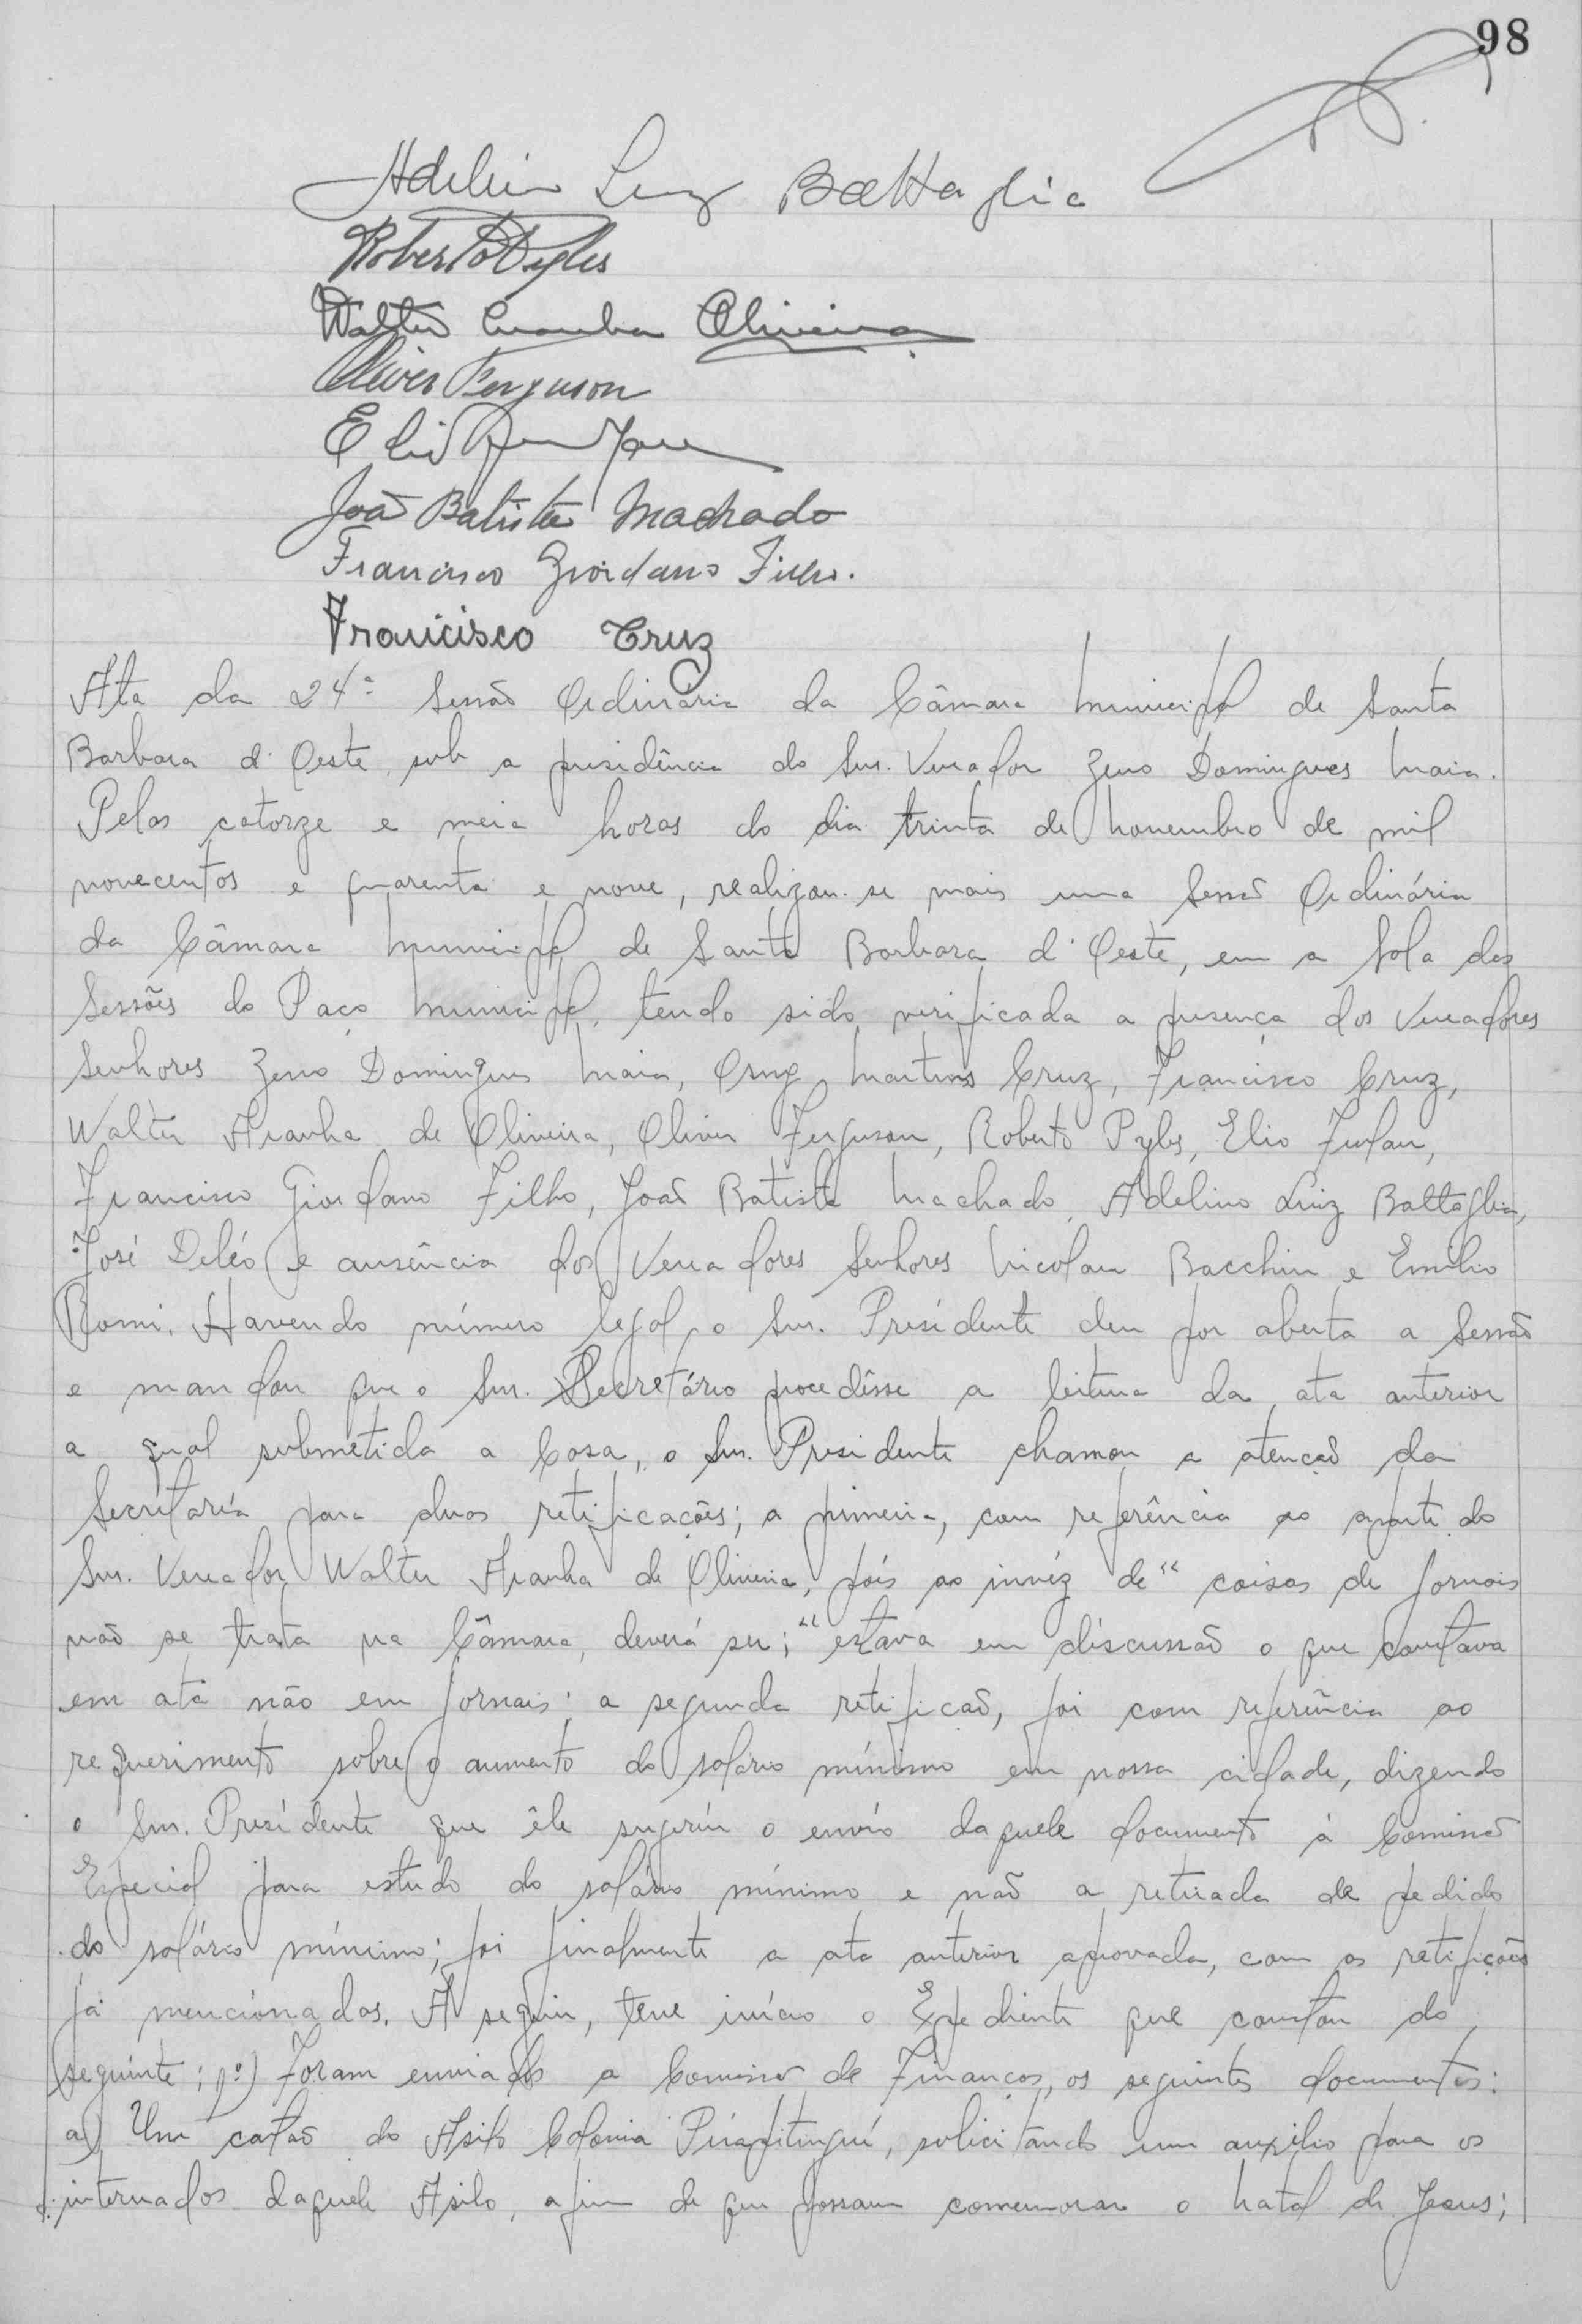 98
Adelino Luiz Battaglia
Roberto Pyles
Walter Aranha Oliveira
Oliver Ferguson
Elio Furlan
João Batista Machado
Francisco Giordano Filho.
Francisco Cruz
Ata da 24ª Sessão Ordinária da Câmara Municipal de Santa
Barbara d'Oeste, sob a presidência do Snr. Vereador Zeno Domingues Maia.
Pelas catorze e meia horas do dia trinta de Novembro de mil
novecentos e quarenta e nove, realizou-se mais uma Sessão Ordinária
da Câmara Municipal de Santa Barbara d'Oeste, em a Sala das
Sessões do Paço Municipal, tendo sido verificada a presença dos Vereadores
Senhores Zeno Domingues Maia, Orng Martins Cruz, Francisco Cruz,
Walter Aranha de Oliveira, Oliver Ferguson, Roberto Pyles, Elio Furlan,
Francisco Giordano Filho, João Batista Machado, Adelino Luiz Battaglia,
José Deléo e ausência dos Vereadores Senhores Nicolau Bacchin e Emilio
Romi. Havendo número legal, o Snr. Presidente deu por aberta a Sessão
e mandou que o Snr. Secretário procedêsse a leitura da ata anterior
a qual submetida a Casa, o Snr. Presidente chamou a atenção da
Secretaría para duas retificações; a primeira, com referência ao aparte do
Snr. Vereador Walter Aranha de Oliveira, pois ao invéz de "coisas de jornais
não se trata na Câmara, deverá ser; "estava em discussão o que constava
em ata não em jornais; a segunda retificaõ, foi com referência ao
requerimento sobre o aumento do salário mínimo em nossa cidade, dizendo
o Snr. Presidente que êle sugeriu o envio daquele documento à Comissão
Especial para estudo do salário mínimo e não a retirada de pedido
do salário mínimo; foi finalmente a ata anterior aprovada, com as retifições
já mencionadas. A seguir, teve início o Expediente que constou do
seguinte; 1º) Foram enviados a Comissão de Finanças, os seguintes documentos:
a) Um cartão do Asilo Colonia Pirapitinguí, solicitando um auxílio para os
internados daquele Asilo, afim de que possam comemorar o Natal de Jesus;